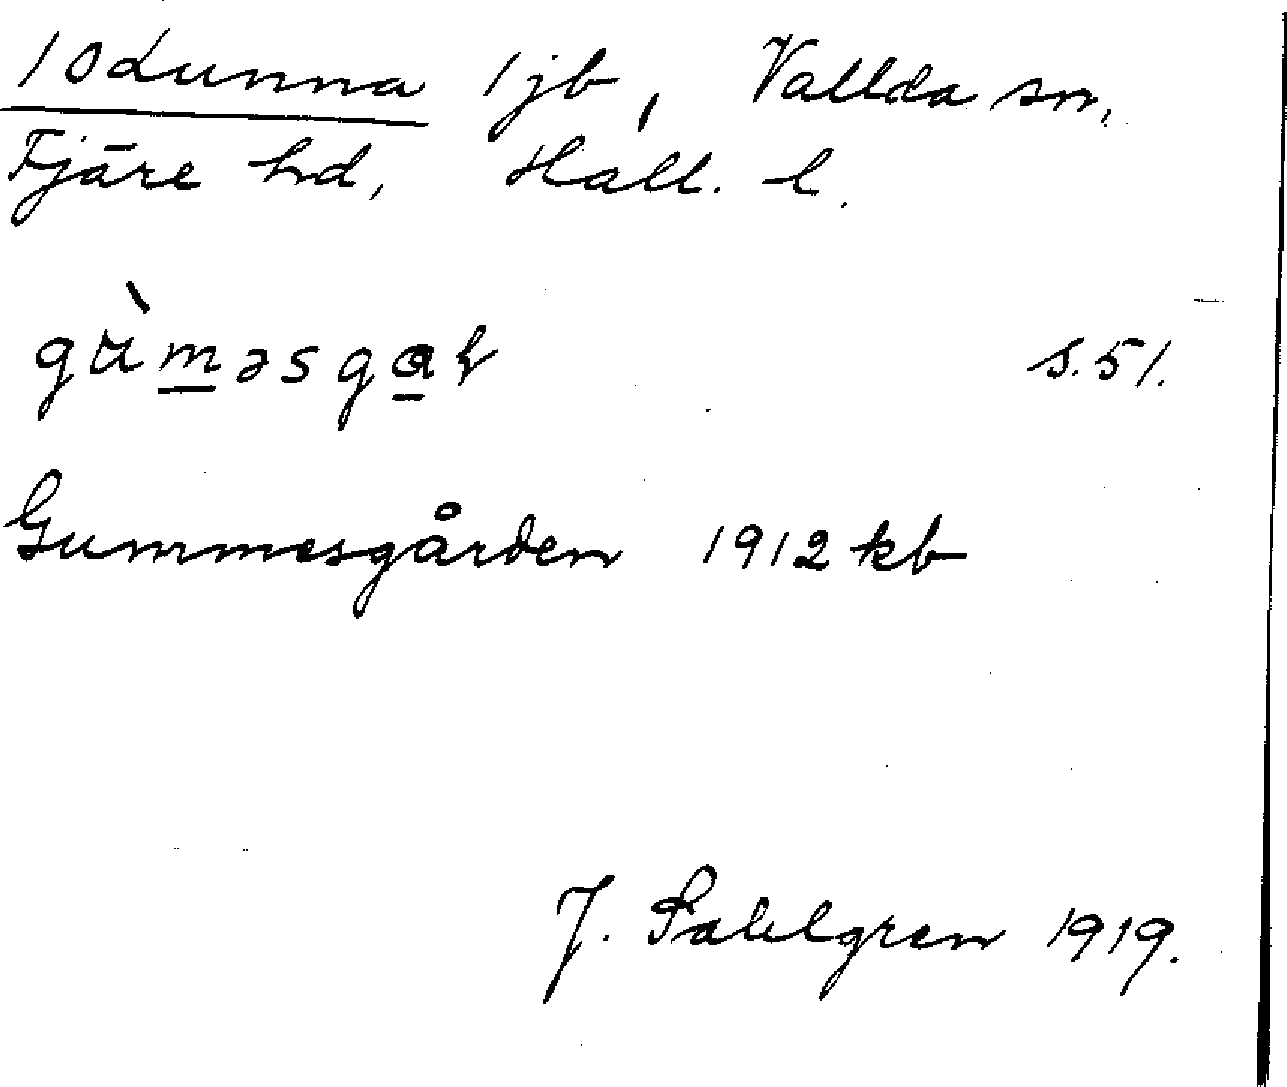 10 Lunna 1 jb, Vallda sn,
Fjäre hd, Hall. l.
gùməsgaɿ s. 51.
Gummesgården 1912 kb
J. Sahlgren 1919.